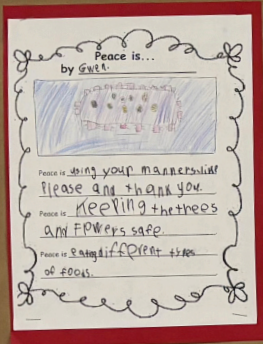 Peace is...
by Gwen.
Peace is using your manners like
Please and thank you.
Peace is Keeping the threes
and Flowers safe.
Peace is eating different types
of foods.